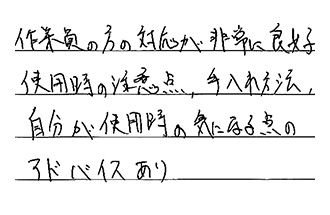 作業員の方の対応が非常に良好
使用時の注意点,手入れ方法,
自分が使用時の気になる点の
アドバイスあり